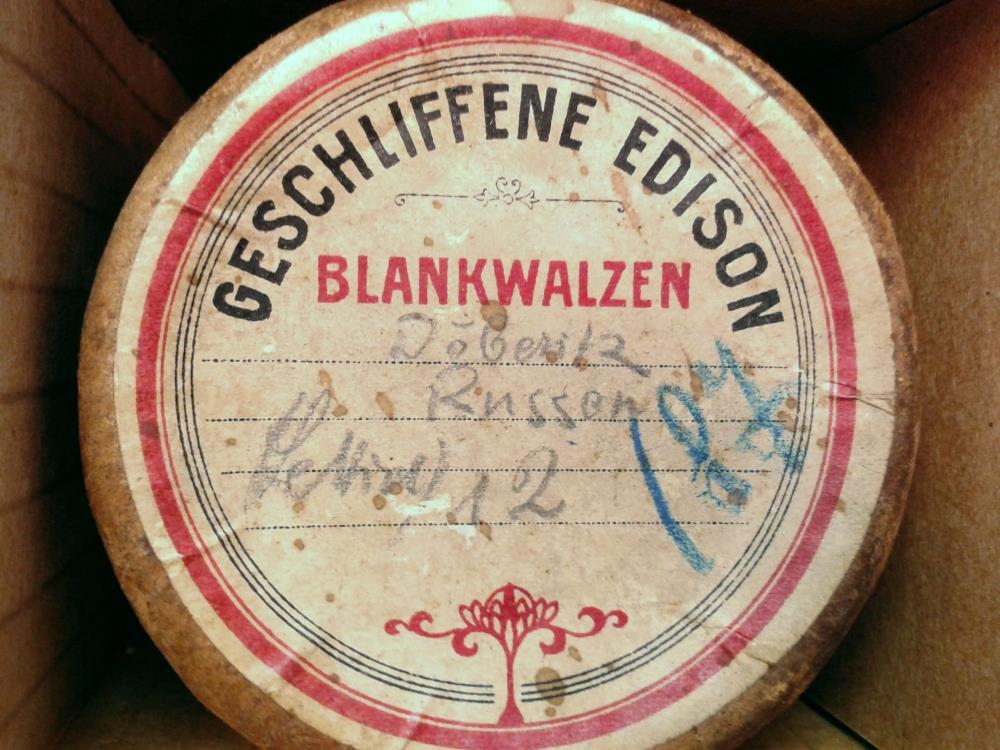 GESCHLIFFENE EDISON
BLANKWALZEN
Döberitz
Russen
12